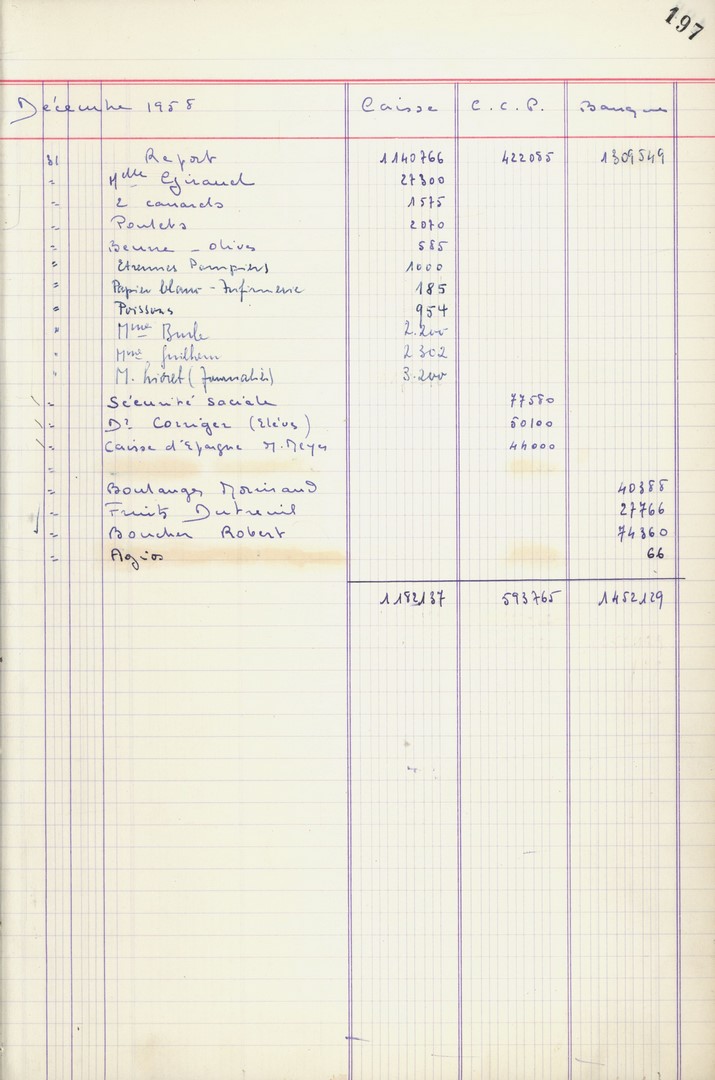 197
Décembre 1958 Caisse C.C.P. Banque
31 Report 1140766 422085 1309549
" Mlle Giraud 27300
" 2 canards 1575
" Poulets 2070
" Beurre - olives 585
" Etrennes Pompiers 1000
" Papier blanc - Infirmerie 185
" Poissons 954
" Mme Burle 2.200
" Mme Guilhem 2302
" M. (Journaliès) 3.200
" Sécurité sociale 77580
" Dr Corriger (Elèves) 50100
" Caisse d'Epargne M. Meyer 44000
"
" Boulanger 40388
" Fruits Dutreuil 27766
" Boucher Robert 74360
" Agios 66
1182137 593765 1452129